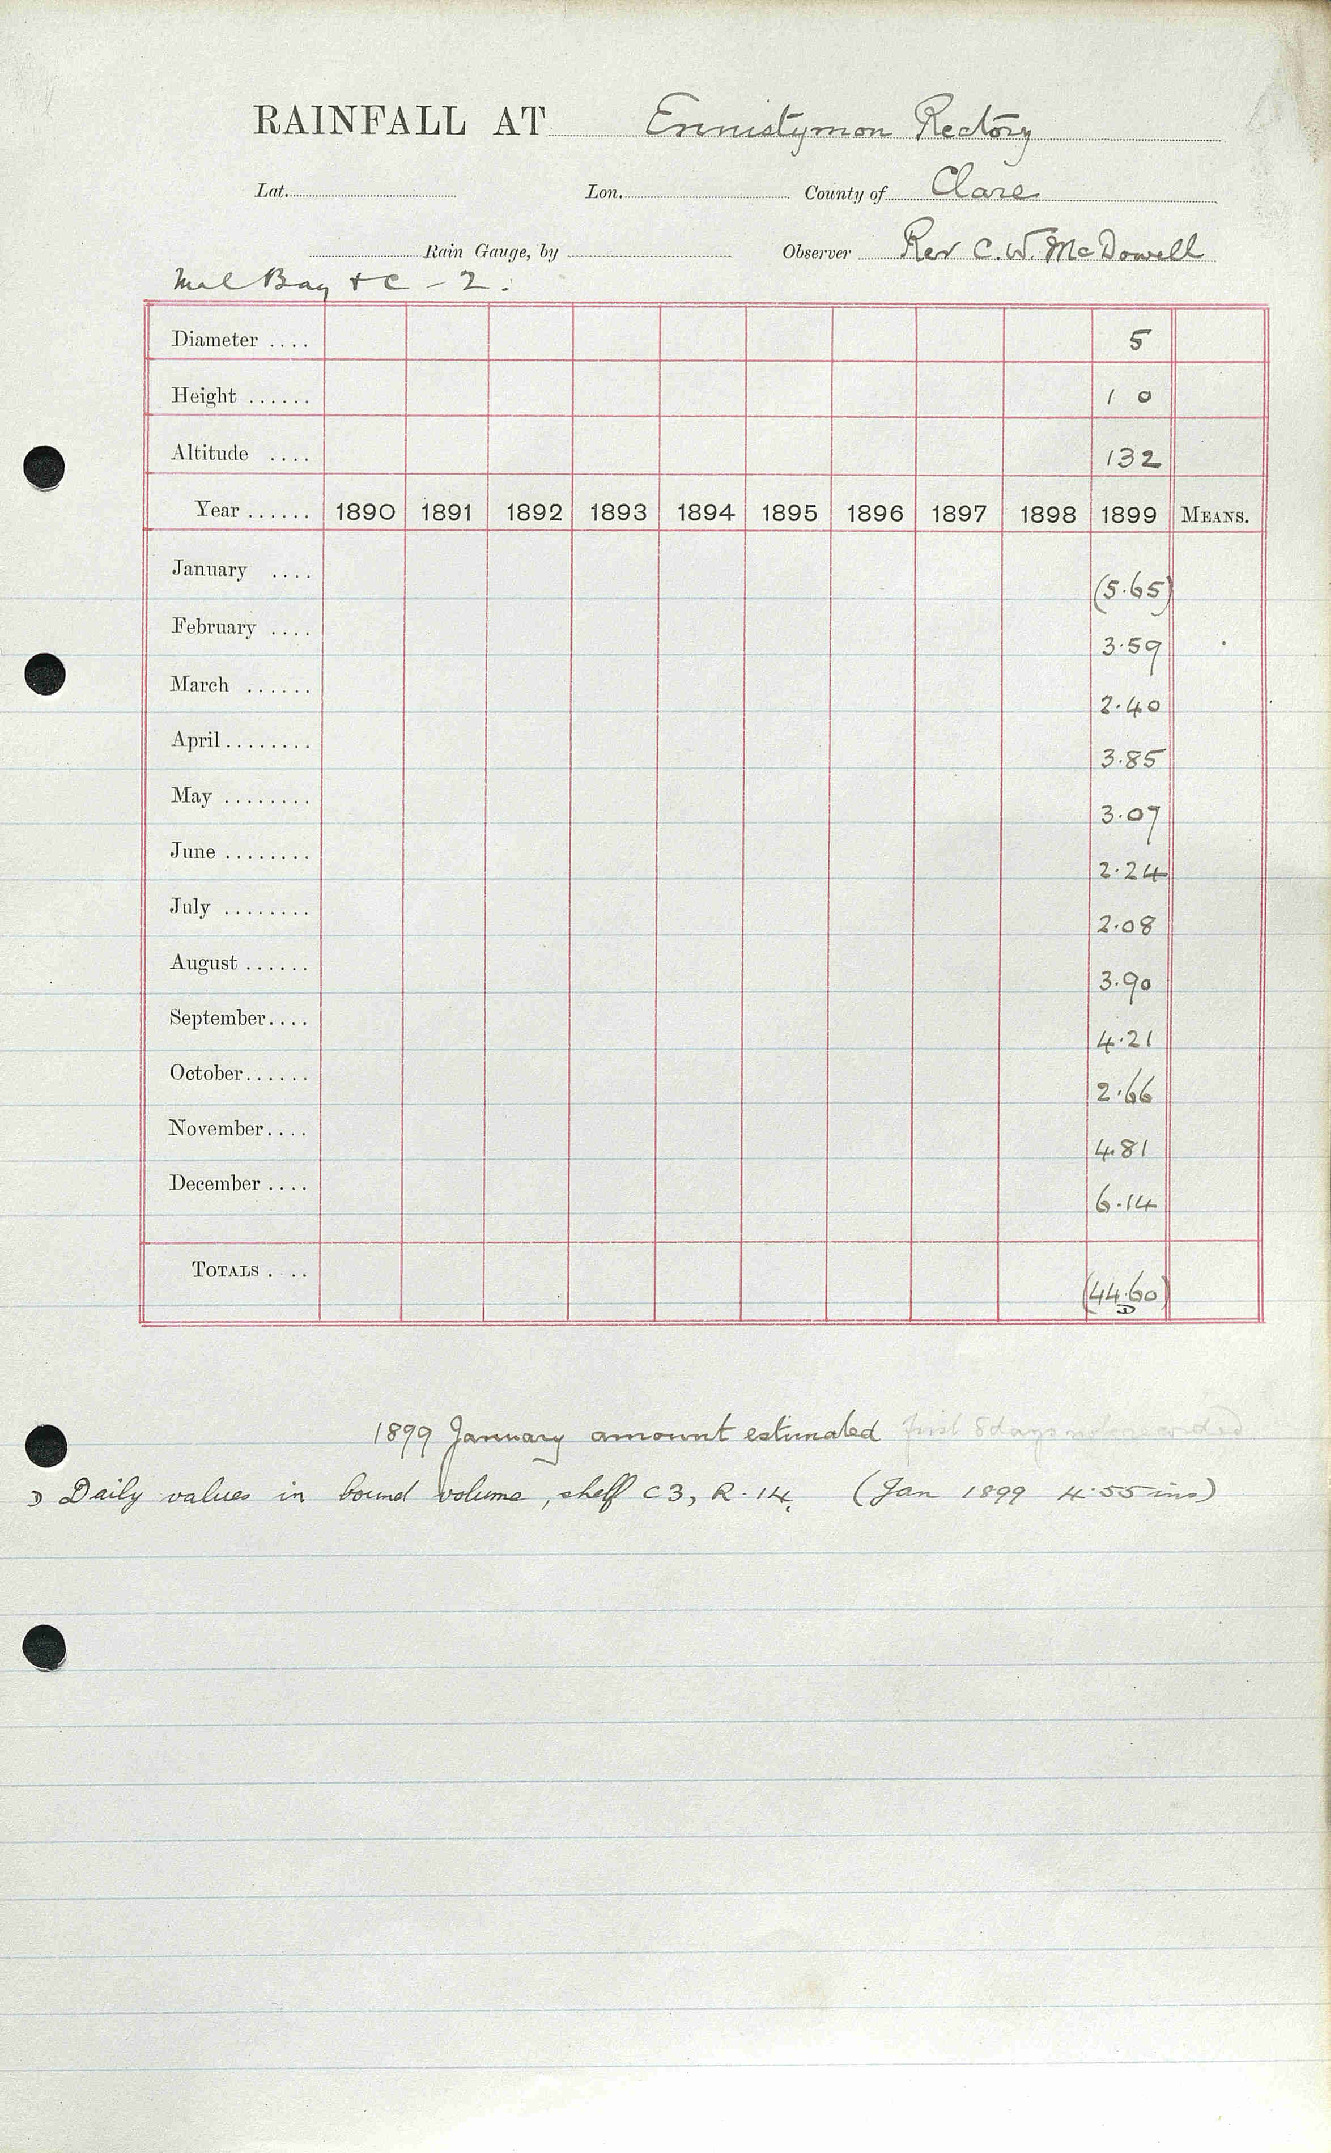 RAINFALL AT Ennistymon Rectory
Lat. Lon. County of Clare
Rain Gauge, by Observer Rev C. W. McDowell
Mal Bay + C - 2.
Diameter .... 5
Height ...... 1 0
Altitude .... 132
Year ...... 1890 1891 1892 1893 1894 1895 1896 1897 1898 1899 MEANS.
January .... (5.65)
February .... 3.59
March ...... 2.40
April ........ 3.85
May ........ 3.07
June ........ 2.24
July ........ 2.08
August ...... 3.90
September.... 4.21
October...... 2.66
November.... 4.81
December .... 6.14
TOTALS .... (44.60)
D
1899 January amount estimated first 8 days not recorded
D Daily values in bound volume, shelf C3, R.14. (Jan 1899 4.55 ins)